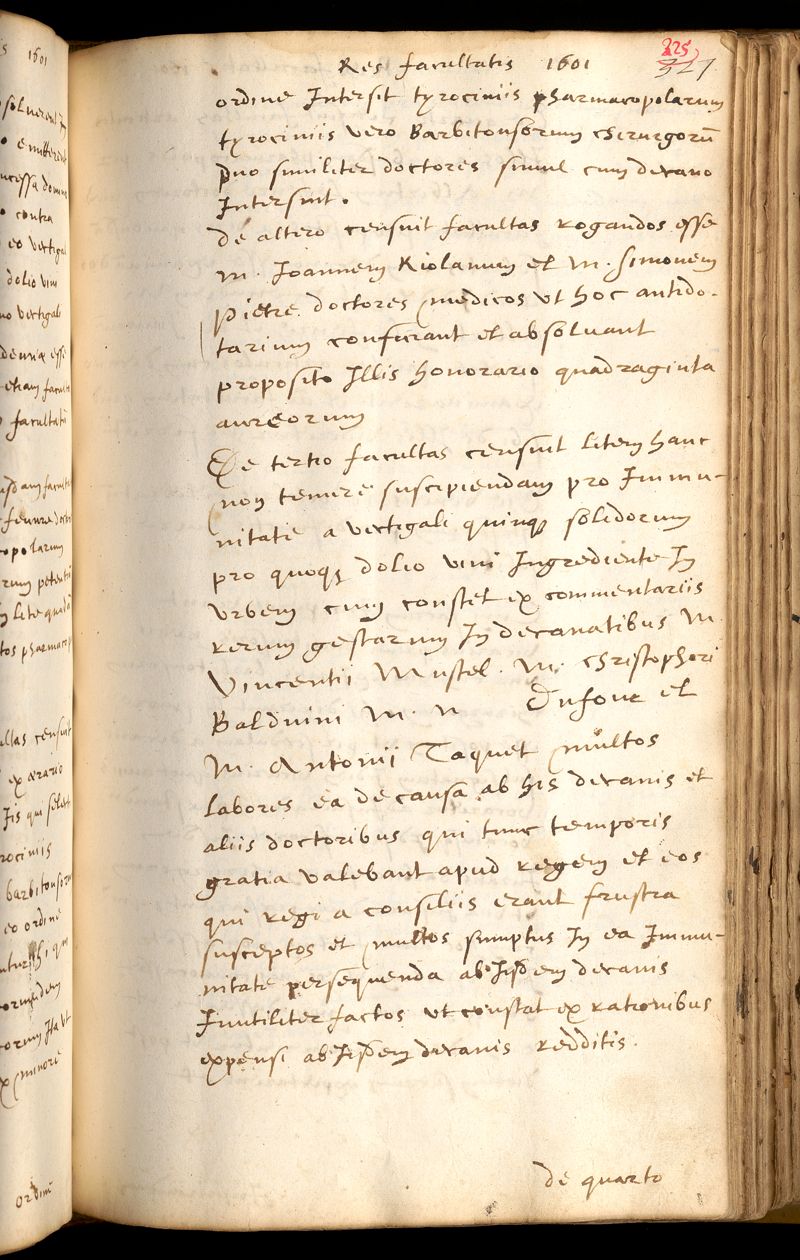 Res facultatis 1601
225
327
ordine Intersit tyrociniis pharmacopolarum
tyrociniis vero Barbitonsorum chirurgorū
Duo similiter doctores simul cum decano
Intersint.
de altero censuit facultas rogandos esse
M. Joannem Riolanum et M. Simonem
Pietre doctores medicos ut hoc antido-
tarium conficiant et absolvant
proposito Illis honorario quadraginta
aureorum
De tertio facultas censuit litem hanc
non temere suscipiendam pro Immu-
nitate a vectigali quinq; solidorum
pro quoq; dolio vini Ingrediente In
urbem cum constet ex commentariis
rerum gestarum In decanatibus M.
Vincentii Mustel. M. Christophori
Balduini M. N Dufour et
M. Antonii Taquet multos
labores ea de causa ab his decanis et
aliis doctoribus qui tunc temporis
gratia valebant apud regem et eos
qui regi a consiliis erant frustra
susceptos et multos sumptus In ea Immu-
nitate persequenda ab Iisdem decanis
Inutiliter factos ut constat ex rationibus
expensi ab Iisdem decanis redditis.
de quarto
s 1601
solverent In
emitterent
contra
eo vectigal
dolio vini
vectigali
esse
etiam facult
facultati
pharmacop
censuit
ex aerario
rociniis
barbitonsoru
eo ordine
minore
ordine